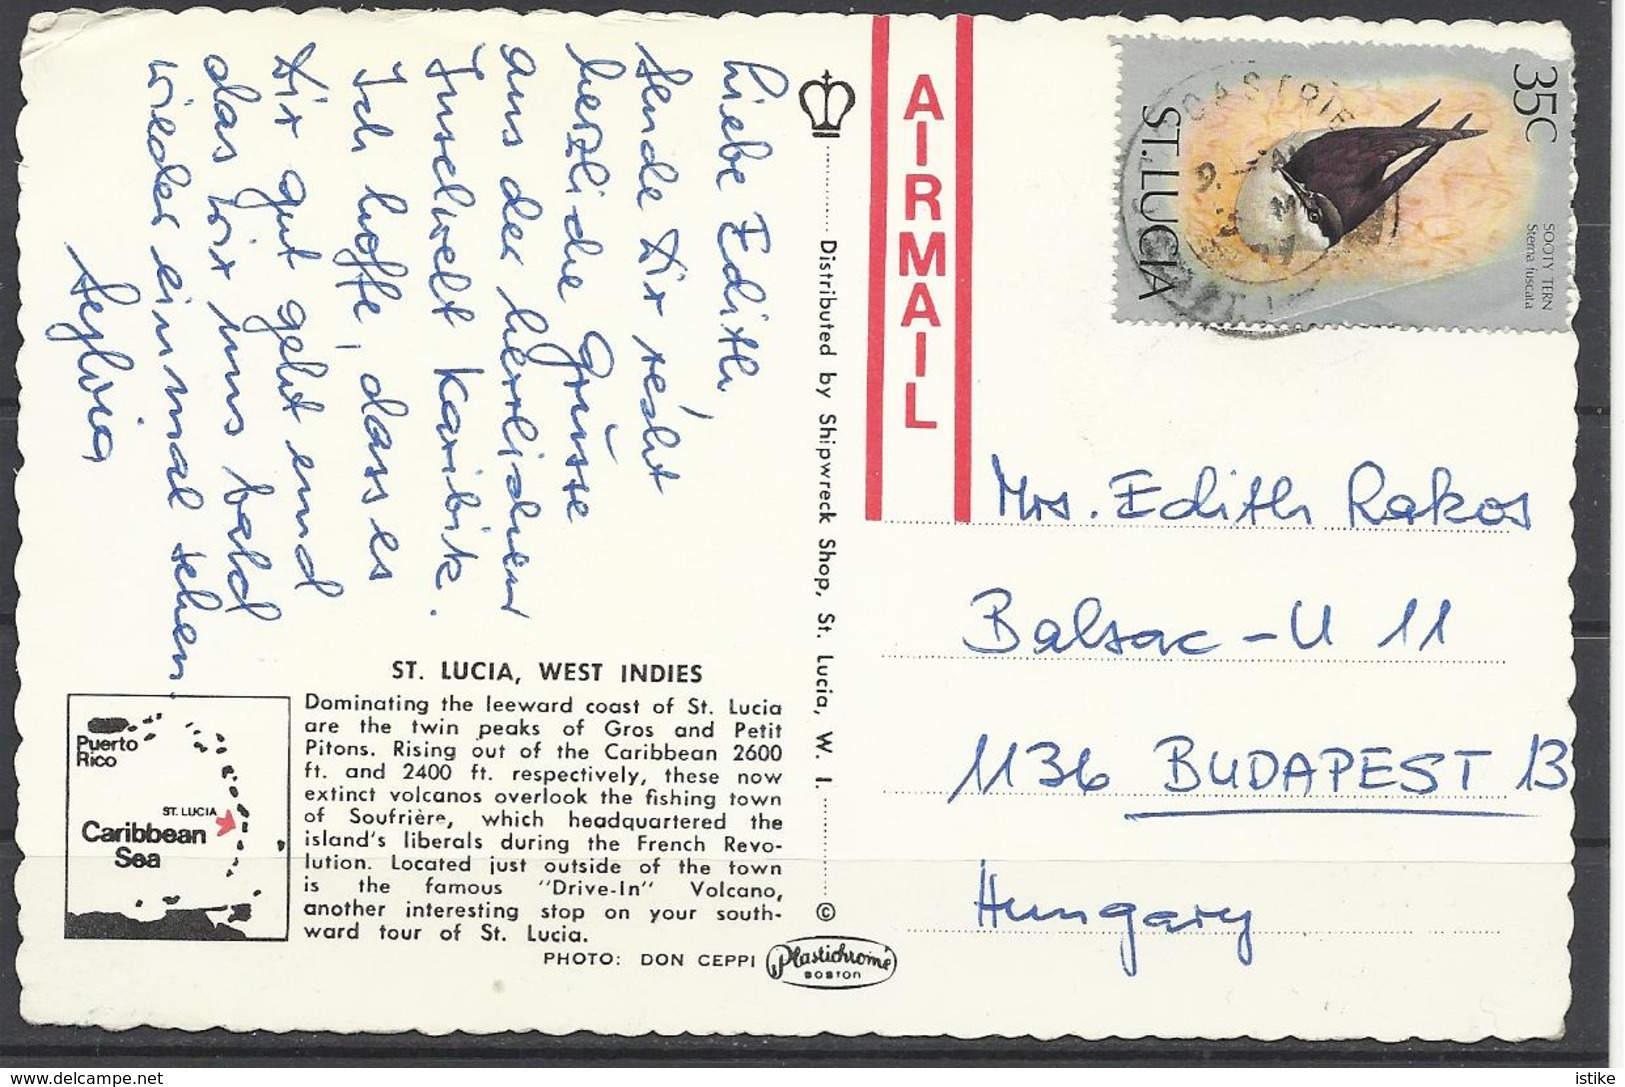 Liebe Edith,
sende Dir recht
herzliche Grüsse
aus der herrlichen
Inselwelt Karibik.
Ich hoffe, dass es
Dir gut geht und
dass wir uns bald
wieder einmal sehen.
AIRMAIL
35C
ST. LUCIA
SOOTY TERN
Sterna fuscata
CASTRIES
Distributed by Shipwreck Shop, St. Lucia, W. I.
©
Mrs. Edith Rakos
Balsac-U 11
1136 BUDAPEST 13
Hungary
ST. LUCIA, WEST INDIES
Dominating the leeward coast of St. Lucia
are the twin peaks of Gros and Petit
Pitons. Rising out of the Caribbean 2600
ft. and 2400 ft. respectively, these now
extinct volcanos overlook the fishing town
of Soufrière, which headquartered the
island's liberals during the French Revo-
lution. Located just outside of the town
is the famous "Drive-In" Volcano,
another interesting stop on your south-
ward tour of St. Lucia.
PHOTO: DON CEPPI
Plastichrome
BOSTON
Puerto
Rico
ST. LUCIA
Caribbean
Sea
www.delcampe.net
istike